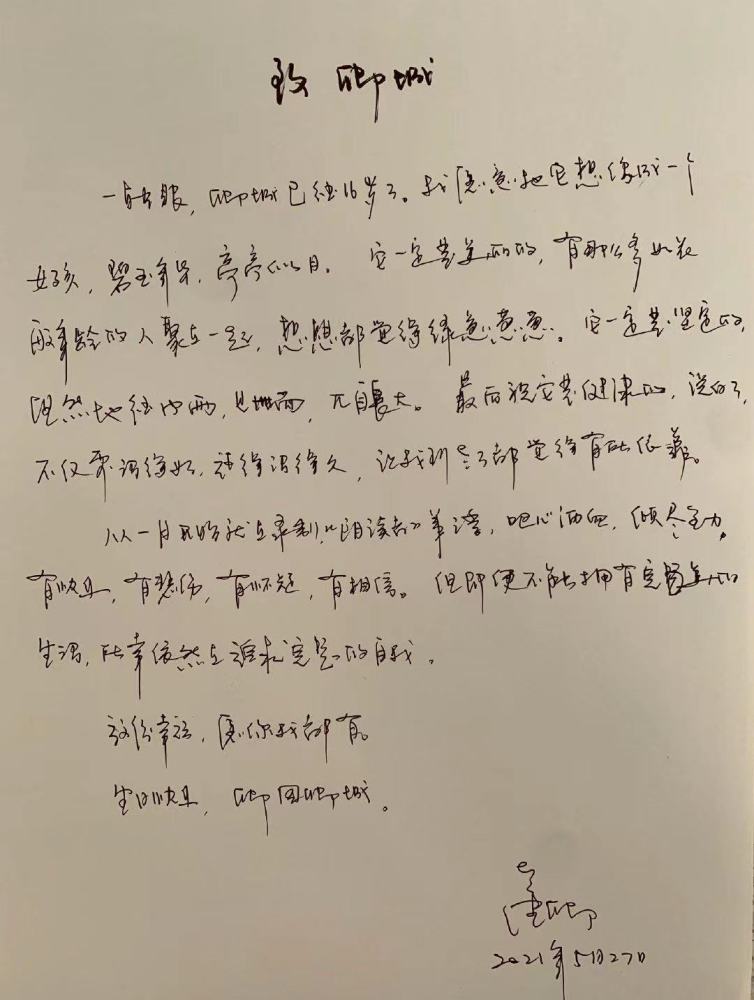 致 卿城
一转眼，卿城已经16岁了。我愿意把它想像成一个
女孩，碧玉年华，亭亭似月。它一定是美好的，有那么多如花
般年龄的人聚在一起，想想都觉得绿意葱葱。它一定是坚定的，
坦然地经内雨，见世面，一直长大。最后祝它是健康的，说好了，
不仅要活得好，还得活得久，让我们老了都觉得有所依靠。
从一月开始就在录制《朗读者》第三季，呕心沥血，倾尽全力，
有快乐，有悲伤，有怀疑，有相信。但即便不能拥有完美的
生活，所幸依然在追求完整的自我。
这份幸福，愿你我都有。
生日快乐，卿固卿城。
董卿
2021年5月27日